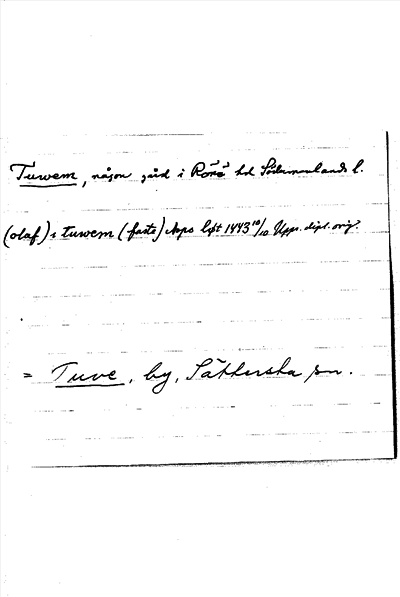 Tuwem, någon gård i Rönö hd Södermanlands l.
(olaf) i tuwem (faste) 1443 10/10 Upps. dipl. orig.
= Tuve, by, Sättersta sn.